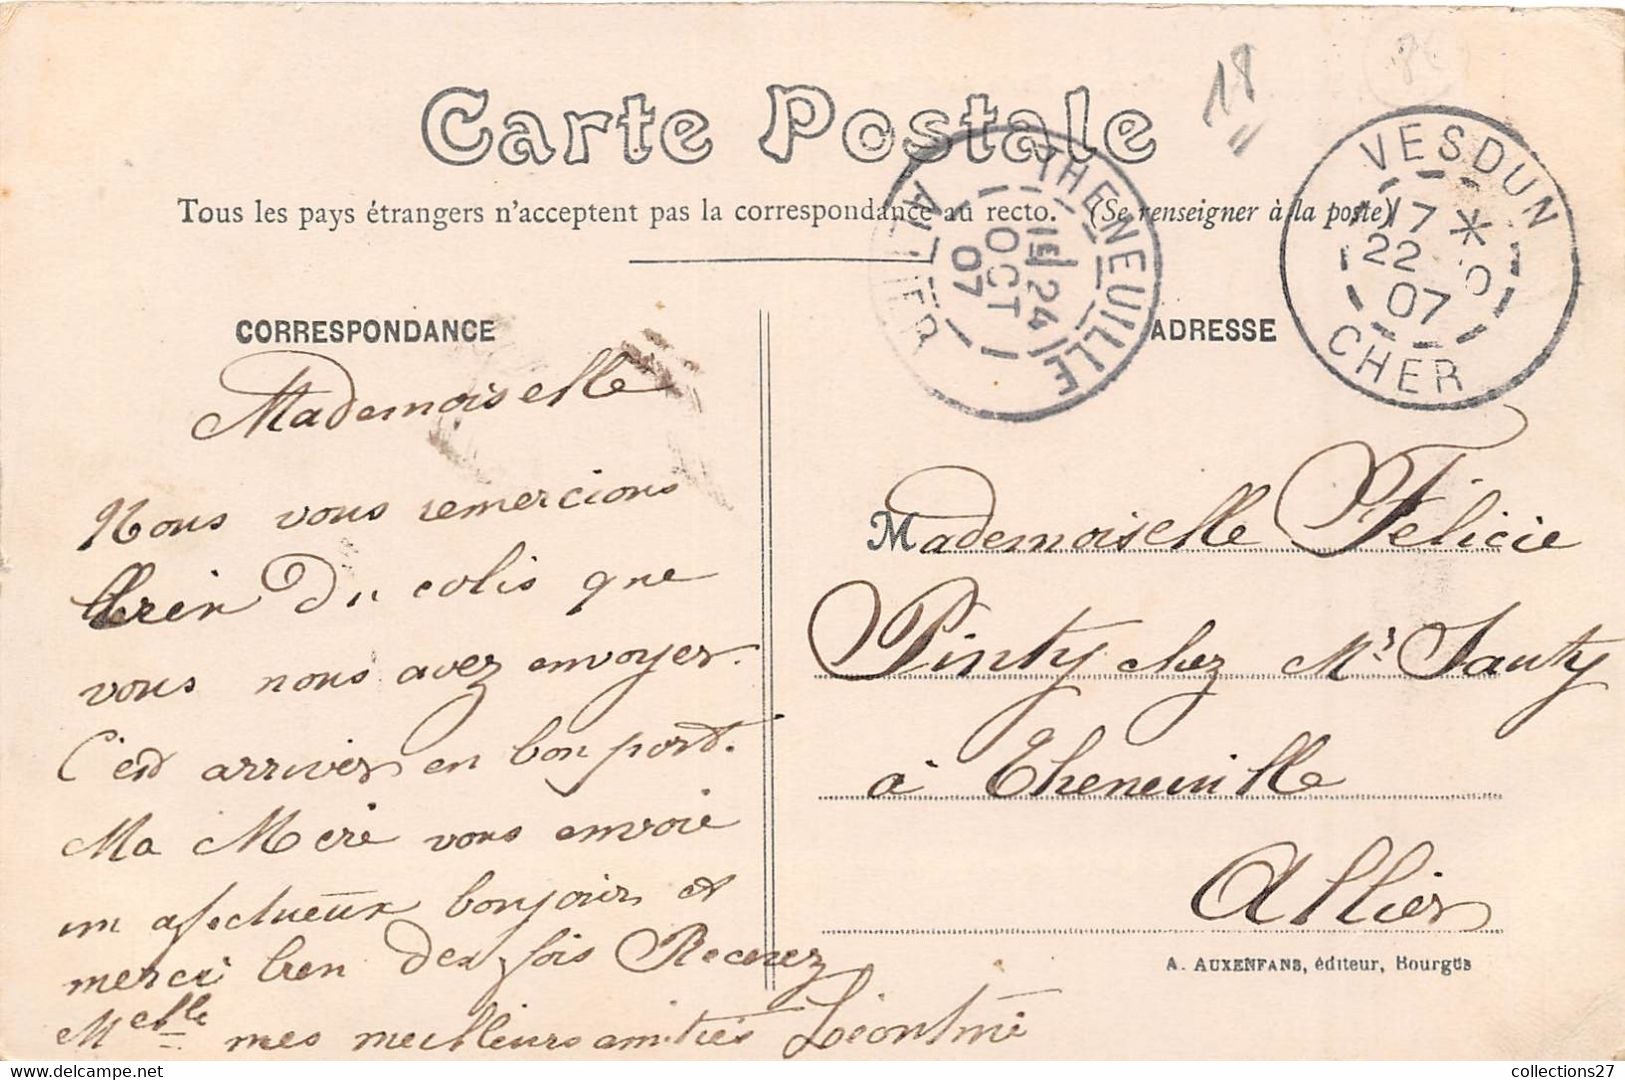 18
Carte Postale
Tous les pays étrangers n'acceptent pas la correspondance au recto. (Se renseigner à la poste)
THENEUILLE
ALLIER
24
OCT
07
VESDUN
17 *
22 0
07
CHER
CORRESPONDANCE
ADRESSE
Mademoiselle
Nous vous remercions
bien du colis que
vous nous avez envoyer.
C'est arriver en bon port.
Ma Mere vous envoie
un afectueux bonjour et
merci bien des fois Recevez
Melle mes meilleurs amitiés Léontine
Mademoiselle Félicie
Pinty chez Mr Sauty
à Theneuille
Allier
A. AUXENFANS, éditeur, Bourges
collections27